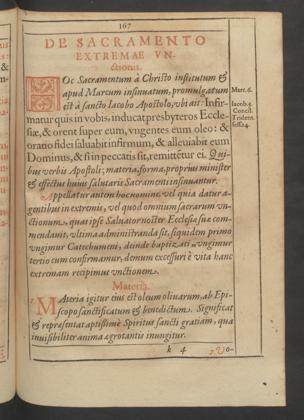 167
DE SACRAMENTO
EXTREMAE VN-
ctionis.
HOc Sacramentum à Christo institutum &
apud Marcum insinuatum, promulgatum
est à sancto Iacobo Apostolo, vbi ait: Infir-
matur quis in vobis, inducat presbyteros Eccle-
siæ, & orent super eum, vngentes eum oleo: &
oratio fidei saluabit infirmum, & alleuiabit eum
Dominus, & si in peccatis sit, remittētur ei. Qui-
bus verbis Apostoli; materia, forma, proprius minister
& effectus huius salutaris Sacramenti insinuantur.
Appellatur autem hoc nomine, vel quia datur a-
gentibus in extremis, vel quod omnium sacrarum vn-
ctionum, quas ipse Saluator noster Ecclesiæ suæ com-
mendauit, vltima administranda sit, siquidem primo
vngimur Catechumeni, deinde baptizati vngimur
tertio cum confirmamur, demum excessuri è vita hanc
extremam recipimus vnctionem.
Marc. 6.
Iacob. 5
Concil.
Trident.
sess. 14.
Materia.
MAteria igitur eius est oleum oliuarum, ab Epi-
scopo sanctificatum & benedictum. Significat
& repræsentat aptissimè Spiritus sancti gratiam, qua
inuisibiliter anima ægrotantis inungitur.
k 4